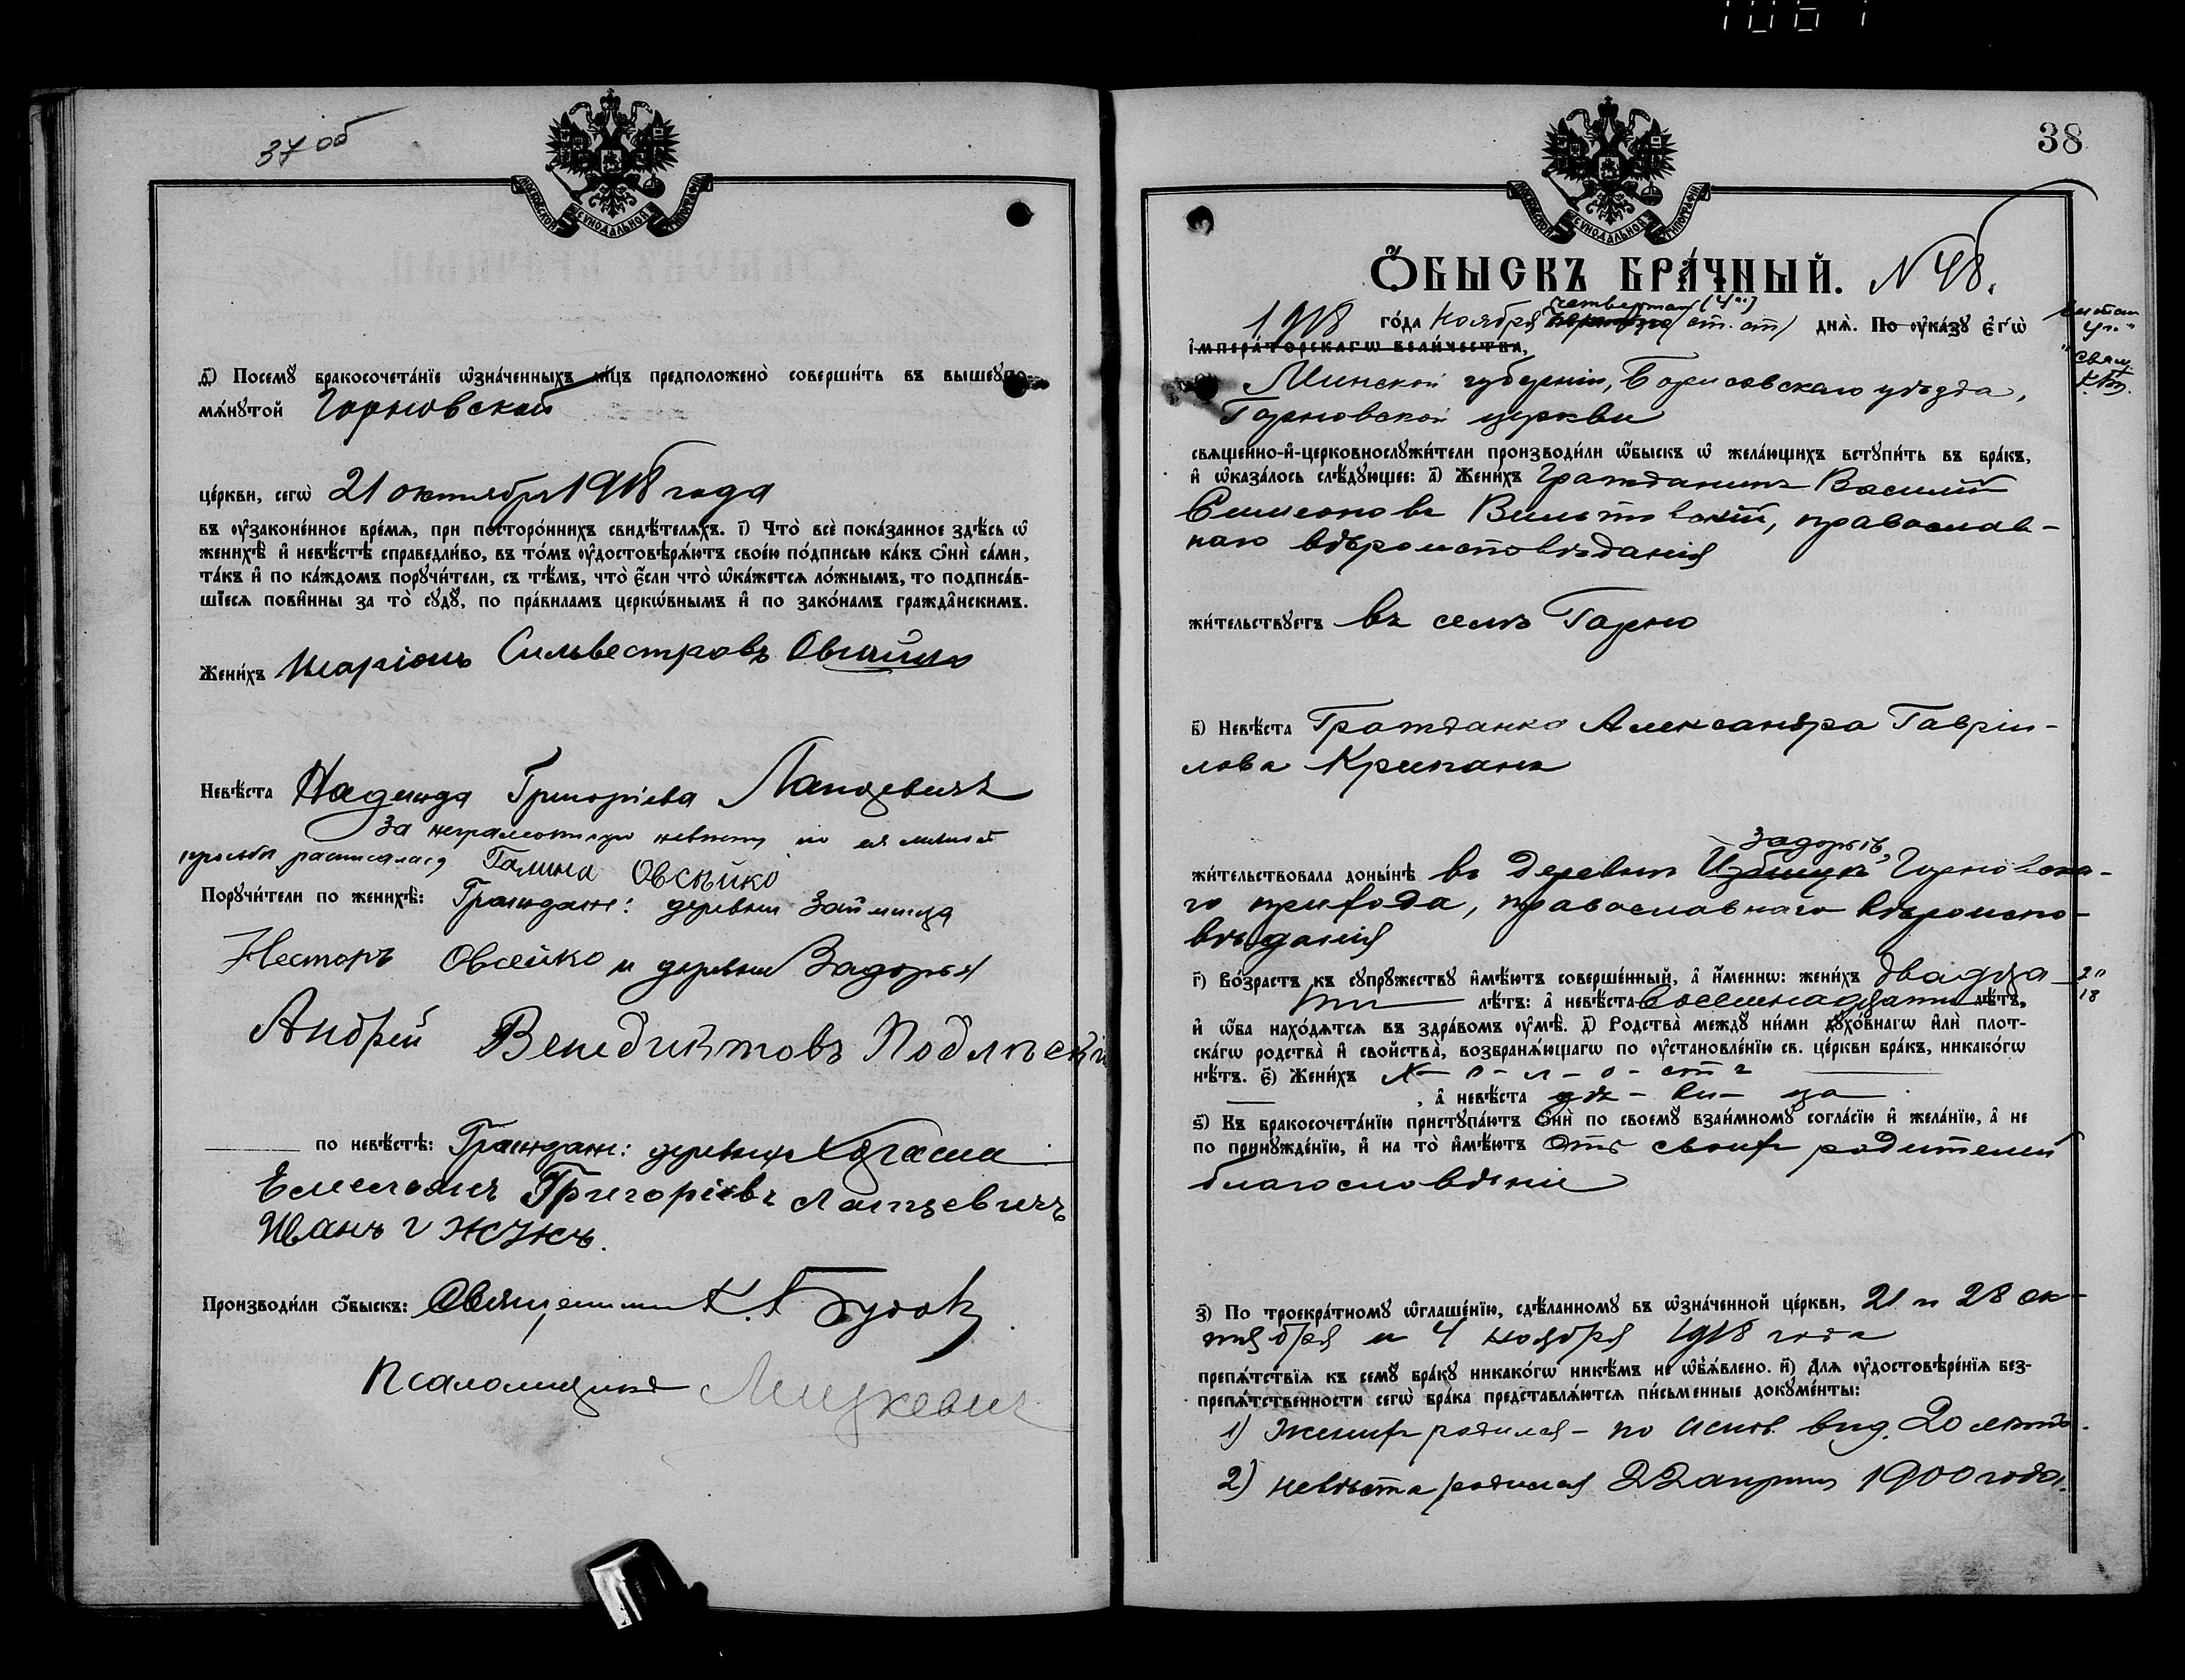 37 об
МОСКОВСКОЙ СѴНОДАЛЬНОЙ ТИПОГРАФІИ
д҃) Посемꙋ̀ бракосочета́нїе ѡ҆зна́ченныхъ ли́цъ предположенѡ̀ соверши́ть въ вышеꙋпо-
мѧ́нꙋтой Горновской
це́ркви, сегѡ̀ 21 октября 1918 года
въ ᲂу҆зако́ненное вре́мѧ, при посторо́ннихъ свидѣ́телѧхъ. і҃) Что̀ всѐ пока́занное здѣ́сь ѡ҆
женихѣ̀ и҆ невѣ́стѣ справедли́во, въ то́мъ ᲂу҆достовѣрѧ́ютъ свое́ю по́дписью ка́къ ѻ҆нѝ са́ми,
та́къ и҆ по ка́ждомъ порꙋчи́тели, съ тѣ́мъ, что̀ є҆́сли что̀ ѡ҆ка́жетсѧ ло́жнымъ, то подписа́в-
шїесѧ пови́нны за то̀ сꙋдꙋ̀, по пра́виламъ церко́внымъ и҆ по зако́намъ гражда́нскимъ.
Жени́хъ Иларіонъ Сильвестровъ Овсейко
Невѣ́ста Надежда Григоріева Лапцевичъ
За неграмотную невѣсту по ея личной
просьбѣ расписалась Галина Овсѣйко
Порꙋчи́тели по женихѣ̀: Граждане: деревни Займища
Несторъ Овсейко и деревни Задорья
Андрей Венедиктовъ Подлѣскій
по невѣ́стѣ: Граждане: деревни
Григоріевъ Лапцевичъ
Иванъ Г Жукъ.
Производи́ли ѻ҆́быскъ: Священникъ К.
Псаломщикъ Мицкевич
38
МОСКОВСКОЙ СѴНОДАЛЬНОЙ ТИПОГРАФІИ
Ѻ҆́БЫСКЪ БРА́ЧНЫЙ. N 48.
четвертаго (4го)
1918 го́да Ноября ст. ст) днѧ̀. По ᲂу҆ка́зꙋ є҆гѡ̀
і҆мпера́торскагѡ вели́чества,
Минской губерніи, Борисовскаго уѣзда,
Горновской церкви
свѧще́нно-и҆-церковнослꙋжи́тели производи́ли ѻ҆́быскъ ѡ҆ жела́ющихъ встꙋпи́ть въ бра́къ,
и҆ ѡ҆каза́лось слѣ́дꙋющее: а҃) Жени́хъ Гражданинъ Василій
Симеоновъ православ-
наго вѣроисповѣданія
жи́тельствꙋетъ въ селѣ Горно
в҃) Невѣ́ста Гражданка Александра Гавріи-
лова
Задорьѣ,
жи́тельствовала доны́нѣ въ деревнѣ Горновска-
го прихода, православнаго вѣроиспо-
вѣданія
г҃) Во́зрастъ къ сꙋпрꙋ́жествꙋ и҆мѣ́ютъ соверше́нный, а҆ и҆́меннѡ: жени́хъ двадца- 20
ти лѣ́тъ: а҆ невѣ́ста восемнадцати лѣ́тъ, 18
и҆ ѻ҆́ба нахо́дѧтсѧ въ здра́вомъ ᲂу҆мѣ̀. д҃) Родства̀ междꙋ̀ ни́ми дꙋхо́внагѡ и҆лѝ плот-
ска́гѡ родства̀ и҆ свойства̀, возбранѧ́ющагѡ по ᲂу҆становле́нїю св. це́ркви бра́къ, никако́гѡ
нѣ́тъ. є҃) Жени́хъ х – о – л – о – стъ
, а҆ невѣ́ста дѣ – ви – ца
ѕ҃) Къ бракосочета́нїю пристꙋпа́ютъ ѻ҆нѝ по своемꙋ̀ взаи́мномꙋ согла́сїю и҆ жела́нїю, а҆ не
по принꙋжде́нїю, и҆ на то̀ и҆мѣ́ютъ Отъ своихъ родителей
благословеніе
з҃) По троекра́тномꙋ ѡ҆глаше́нїю, сдѣ́ланномꙋ въ ѡ҆зна́ченной це́ркви, 21 и 28 ок-
тября и 4 ноября 1918 года
препѧ́тствїѧ къ семꙋ̀ бра́кꙋ никако́гѡ никѣ́мъ не ѡ҆б̾ѧ́влено. и҃) Длѧ ᲂу҆достовѣре́нїѧ без-
препѧ́тственности сегѡ̀ бра́ка представлѧ́ютсѧ пи́сьменные докꙋме́нты:
1) Женихъ родился – по испов. вѣд. 20 лѣтъ.
2) невѣста родилась 22 апрѣля 1900 года.